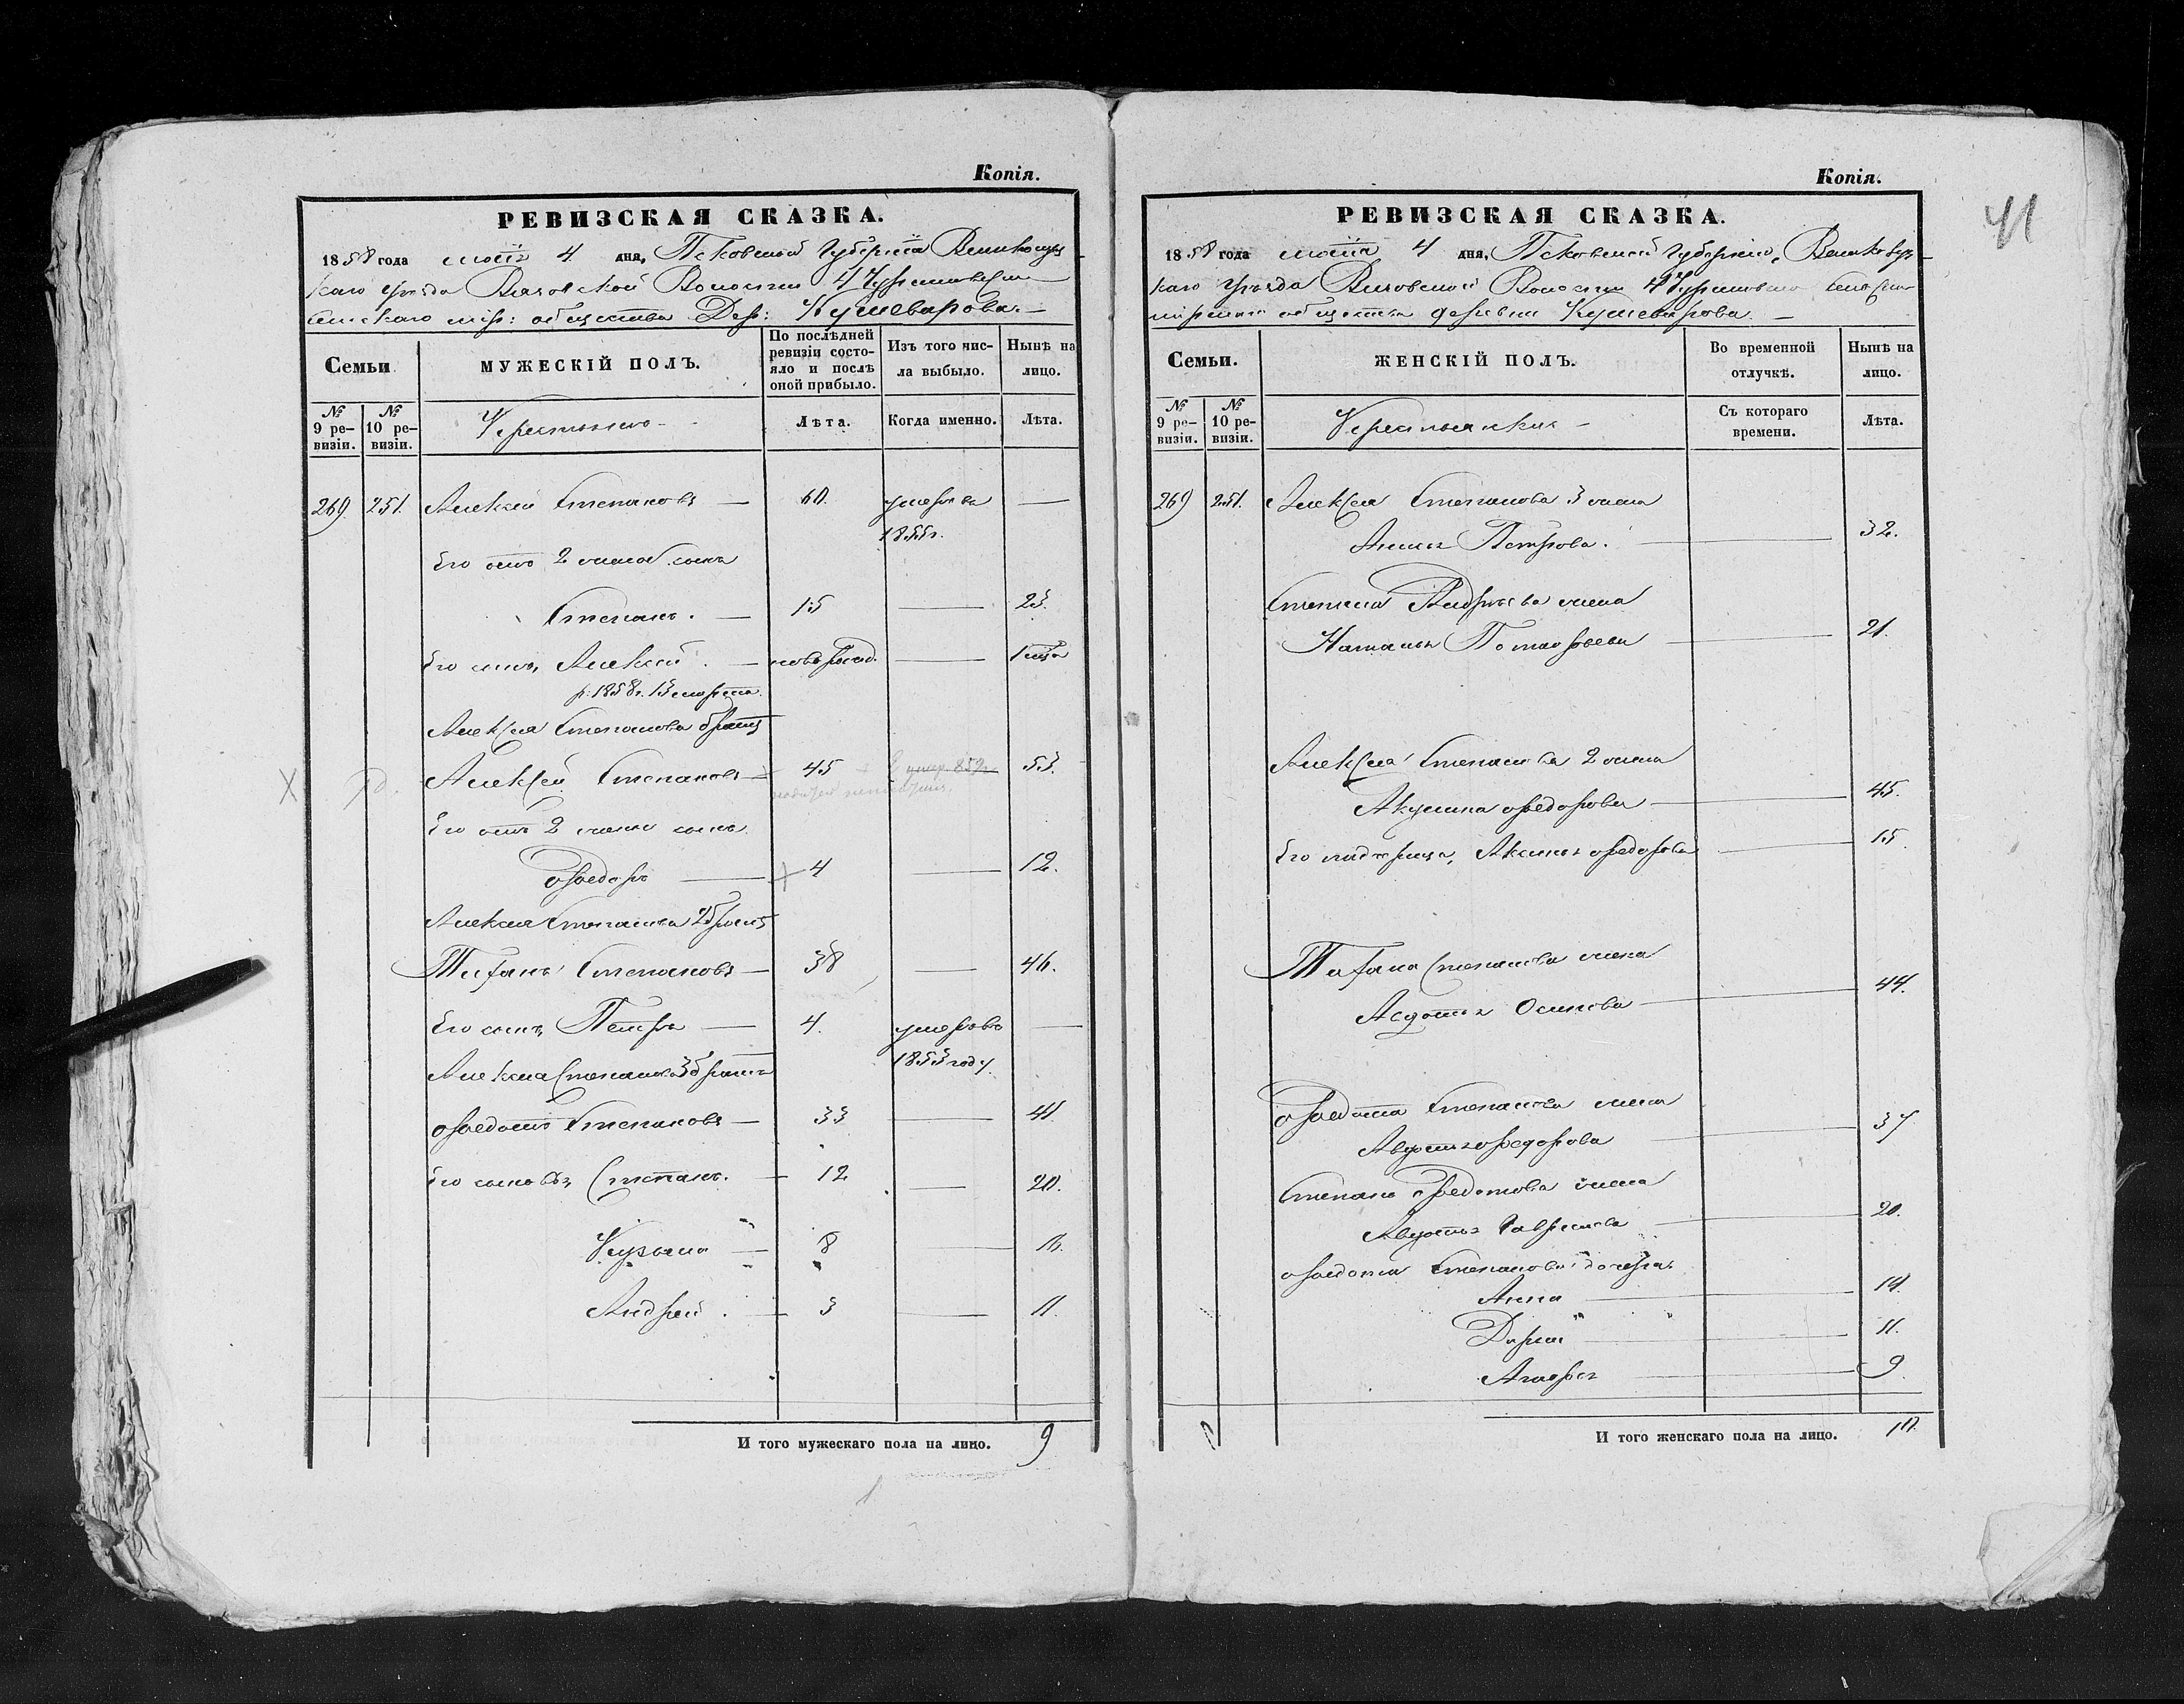 Копія.
РЕВИЗСКАЯ СКАЗКА.
1858 года маія 4 дня, Псковской Губерніи Великолуц
каго уѣзда Вязовской Волости
сельскаго мір: общества Дер: Кушеварова.
Семьи
МУЖЕСКІЙ ПОЛЪ.
По послѣдней ревизіи состояло и послѣ оной прибыло.
Изъ того числа выбыло.
Нынѣ на лицо.
№ 9 ревизіи.
№ 10 ревизіи.
Крестьяне
Лѣта.
Когда именно.
Лѣта.
269. 251. Алексей Степановъ — 60. умеръ въ —
1855 г.
Его отъ 2 жены сынъ
Степанъ. — 15 — 23.
Его сынъ Алексей. — новорожд. — 1 мѣся
р. 1858 г. 13 марта
Алексея Степанова братъ
Алексей Степановъ — 45 умер. 852 53.
Его отъ 2 жены сынъ
Ѳедоръ — 4 — 12.
Алексея Степанова 2 братъ
Титъ Степановъ — 38 — 46.
Его сынъ Петръ — 4. умеръ въ —
1853 году.
Алексея Степанова 3 братъ
Ѳедотъ Степановъ — 33 — 41
Его сыновья, Степанъ. — 12 — 20.
Кузьма — 8 — 16.
Андрей. — 3 — 11.
И того мужескаго пола на лицо. 9
Копія.
41
РЕВИЗСКАЯ СКАЗКА.
1858 года маія 4 дня, Псковской Губерніи, Великолуц
каго уѣзда Вязовской Волости
мірскаго общества деревни Кушеварова. —
Семьи.
ЖЕНСКІЙ ПОЛЪ.
Во временной отлучкѣ.
Нынѣ на лицо.
№ 9 ревизіи.
№ 10 ревизіи.
Крестьянки —
Съ котораго времени.
Лѣта.
269 251. Алексея Степанова 3 жена
Анна Петрова. — 32.
Степана жена
Наталья — 21.
Алексея Степанова 2 жена
Акулина Ѳедорова — 45.
Его падчерица, Аксинья Ѳедорова — 15
Степанова жена
Авдотья Осипова — 44.
Ѳедота Степанова жена
Авдотья Ѳедорова — 37
Степана Ѳедотова жена
Авдотья Гаврилова — 20.
Ѳедота Степанова дочери.
Анна — 14.
Дарья — 11.
— 9
И того женскаго пола на лицо. 10.